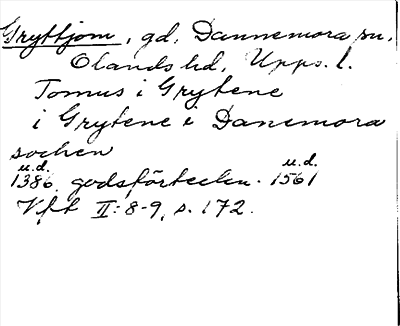 Gryttjom, gd, Dannemora sn,
Olands hd, Upps. l.
Tomus i Grytene
i Grytene i Danemora
sochen
u.d. u.d.
1386, godsförteckn. 1561
Vft II: 8-9, s. 172.